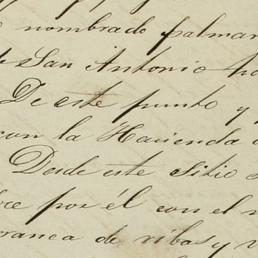 nombrado palmar
San Antonio
De este punto y
con la Hacienda
Desde este Sitio
por él con el
de ribas y